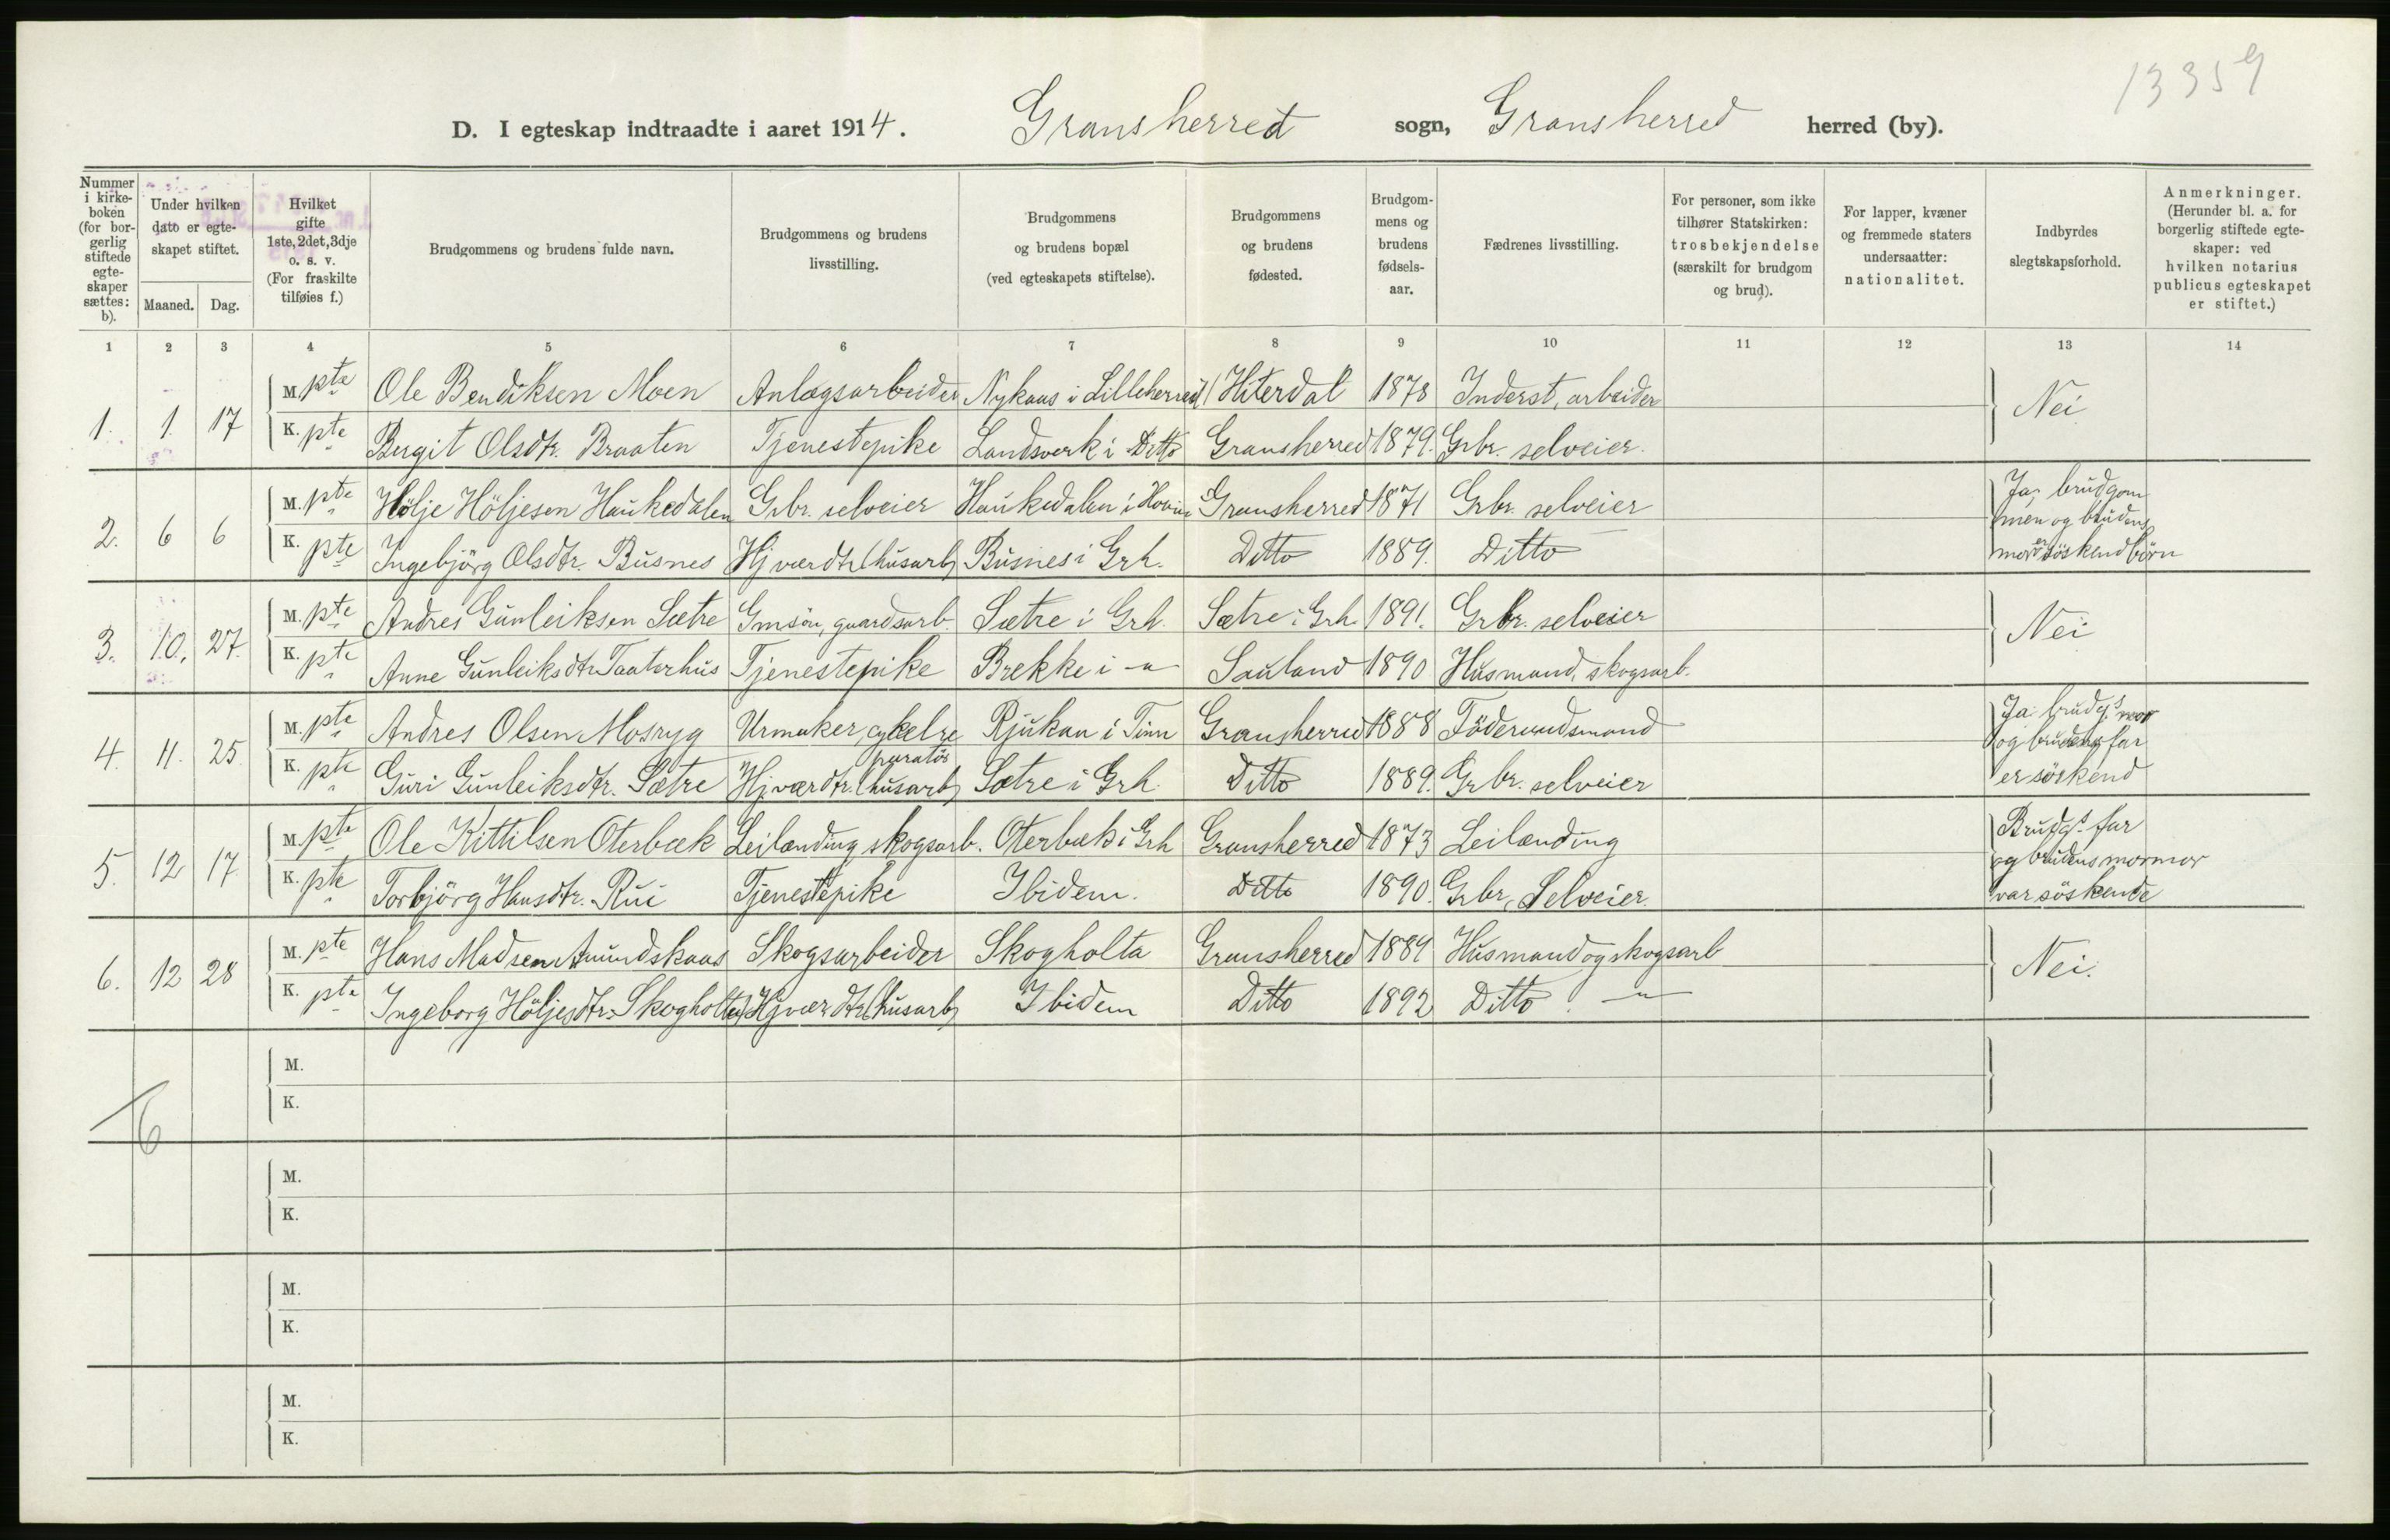 13359
D. I egteskap indtraadte i aaret 1914. Gransherred sogn, Gransherred herred (by).
Nummer i kirkeboken (for borgerlig stiftede egteskaper sættes: b).
Under hvilken dato er egteskapet stiftet.
Maaned. Dag.
Hvilket gifte 1ste, 2det, 3dje o. s. v. (For fraskilte tilføies f.)
Brudgommens og brudens fulde navn.
Brudgommens og brudens livsstilling.
Brudgommens og brudens bopæl (ved egteskapets stiftelse).
Brudgommens og brudens fødested.
Brudgommens og brudens fødselsaar.
Fædrenes livsstilling.
For personer, som ikke tilhører Statskirken: trosbekjendelse (særskilt for brudgom og brud).
For lapper, kvæner og fremmede staters undersaatter: nationalitet.
Indbyrdes slegtskapsforhold.
Anmerkninger. (Herunder bl. a. for borgerlig stiftede egteskaper: ved hvilken notarius publicus egteskapet er stiftet.)
1 2 3 4 5 6 7 8 9 10 11 12 13 14
1. 1. 17 M. pte Ole Bendiksen Moen Anlægsarbeider Nykaas i Lilleherred Hiterdal 1878 Inderst, arbeider Nei
K. pte Bergit Olsdtr. Braaten Tjenestepike Landsverk i Ditto Gransherred 1879. Grbr. selveier.
2. 6 6 M. pte Hölje Höljesen Haukedalen Grbr. selveier Haukedalen i Hovin Gransherred 1871 Grbr. selveier Ja, brudgommen og brudens mor er söskendbörn
K. pte Ingebjörg Olsdtr. Busnes Hjværdtr (husarb) Busnes i Grh. Ditto 1889. Ditto
3. 10. 27. M. pte Andres Gunleiksen Sætre Gmsön, gaardsarb. Sætre i Grh. Sætre i Grh. 1891. Grbr. selveier Nei
K. pte Anne Gunleiksdtr Taaterhus Tjenestepike Brekke i -"- Sauland 1890 Husmand, skogsarb.
4. 11. 25 M. pte Andres Olsen Mosryg Urmaker, cykelreparatör Rjukan i Tinn Gransherred 1888 Föderaadsmand Ja. brudgs mor og brudens far er söskend
K. pte Guri Gunleiksdtr. Sætre Hjværdtr. (husarb) Sætre i Grh. Ditto 1889. Grbr. selveier
5. 12 17 M. pte Ole Kittilsen Oterbæk Leilænding skogsarb. Oterbæk i Grh Gransherred 1873 Leilænding Brudgs far og brudens mormor var söskende
K. pte Torbjörg Hansdtr. Rui Tjenestepike Ibidem. Ditto 1890. Grbr, Selveier.
6. 12 28 M. pte Hans Madsen Amundskaas Skogsarbeider Skogholta Gransherred 1889 Husmand og skogsarb Nei.
K. pte Ingeborg Höljesdtr. Skogholta Hjværdtr (husarb) Ibidem Ditto 1892 Ditto. -"-
M.
K.
6
M.
K.
M.
K.
M.
K.